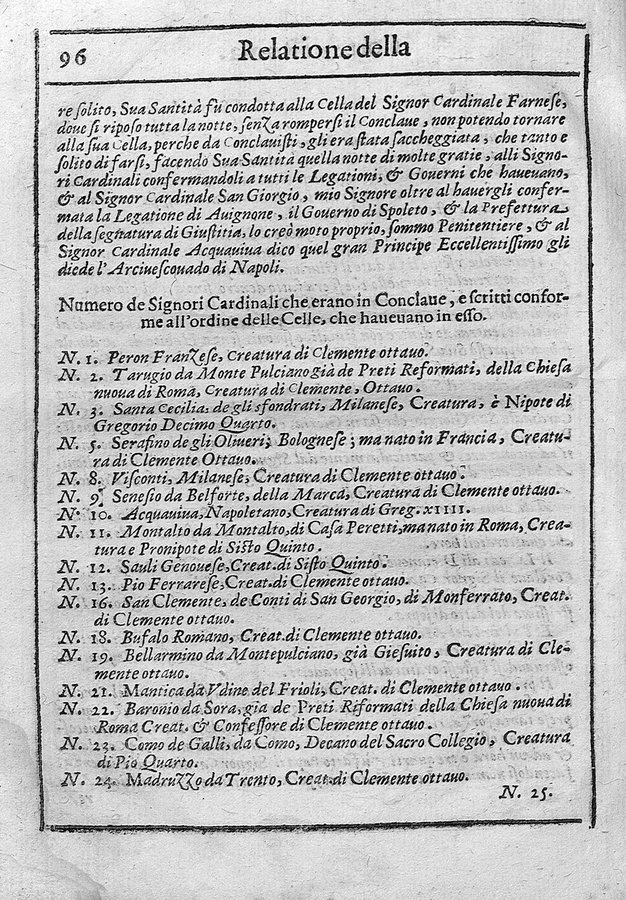 96
Relatione della
re solito, Sua Santità fù condotta alla Cella del Signor Cardinale Farnese,
doue si riposo tutta la notte, senza rompersi il Conclaue, non potendo tornare
alla sua Cella, perche da Conclauisti, gli era stata saccheggiata, che tanto e
solito di farsi, facendo Sua Santità quella notte di molte gratie, alli Signo-
ri Cardinali confermandoli a tutti le Legationi, & Gouerni che haueuano,
& al Signor Cardinale San Giorgio, mio Signore oltre al hauergli confer-
mata la Legatione di Auignone, il Gouerno di Spoleto, & la Prefettura
della segnatura di Giustitia, lo creò moto proprio, sommo Penitentiere, & al
Signor Cardinale Acquauiua dico quel gran Principe Eccellentissimo gli
diede l'Arciuescouado di Napoli.
Numero de Signori Cardinali che erano in Conclaue, e scritti confor-
me all'ordine delle Celle, che haueuano in esso.
N. 1. Peron Franzese, Creatura di Clemente ottauo.
N. 2. Tarugio da Monte Pulciano già de Preti Reformati, della Chiesa
nuoua di Roma, Creatura di Clemente, Ottauo.
N. 3. Santa Cecilia de gli sfondrati, Milanese, Creatura, è Nipote di
Gregorio Decimo Quarto.
N. 5. Serafino de gli Oliueri; Bolognese; ma nato in Francia, Creatu-
ra di Clemente Ottauo.
N. 8. Visconti, Milanese, Creatura di Clemente ottauo.
N. 9. Senesio da Belforte, della Marca, Creatura di Clemente ottauo.
N. 10. Acquauiua, Napoletano, Creatura di Greg. XIIII.
N. 11. Montalto da Montalto, di Casa Peretti, ma nato in Roma, Crea-
tura e Pronipote di Sisto Quinto.
N. 12. Sauli Genouese, Creat. di Sisto Quinto.
N. 13. Pio Ferrarese, Creat. di Clemente ottauo.
N. 16. San Clemente, de Conti di San Georgio, di Monferrato, Creat.
di Clemente ottauo.
N. 18. Bufalo Romano, Creat. di Clemente ottauo.
N. 19. Bellarmino da Montepulciano, già Giesuito, Creatura di Cle-
mente ottauo.
N. 21. Mantica da Vdine del Frioli, Creat. di Clemente ottauo.
N. 22. Baronio da Sora, gia de Preti Riformati della Chiesa nuoua di
Roma Creat. & Confessore di Clemente ottauo.
N. 23. Como de Galli, da Como, Decano del Sacro Collegio, Creatura
di Pio Quarto.
N. 24. Madruzzo da Trento, Creat. di Clemente ottauo.
N. 25.